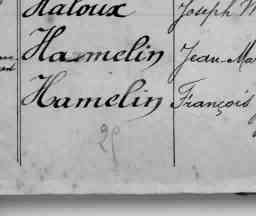 Haloux Joseph
Hamelin Jean-Ma
Hamelin François
25